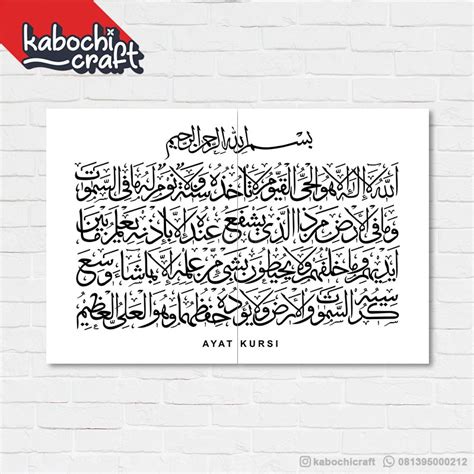 kabochi
craft
بسم الله الرحمن الرحيم
الله لا إله إلا هو الحي القيوم لا تأخذه سنة ولا نوم له ما في السموت
وما في الأرض من ذا الذي يشفع عنده إلا بإذنه يعلم ما بين
أيديهم وما خلفهم ولا يحيطون بشيء من علمه إلا بما شاء وسع
كرسيه السموت والأرض ولا يؤده حفظهما وهو العلي العظيم
AYAT KURSI
kabochicraft 081395000212